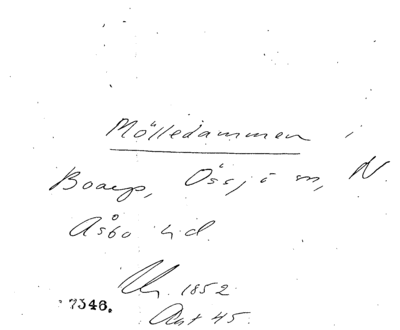 Mölledammen i
Boarp, Össjö sn, N.
Åsbo hd.
Ur. 1852
7346.
Ant 45.